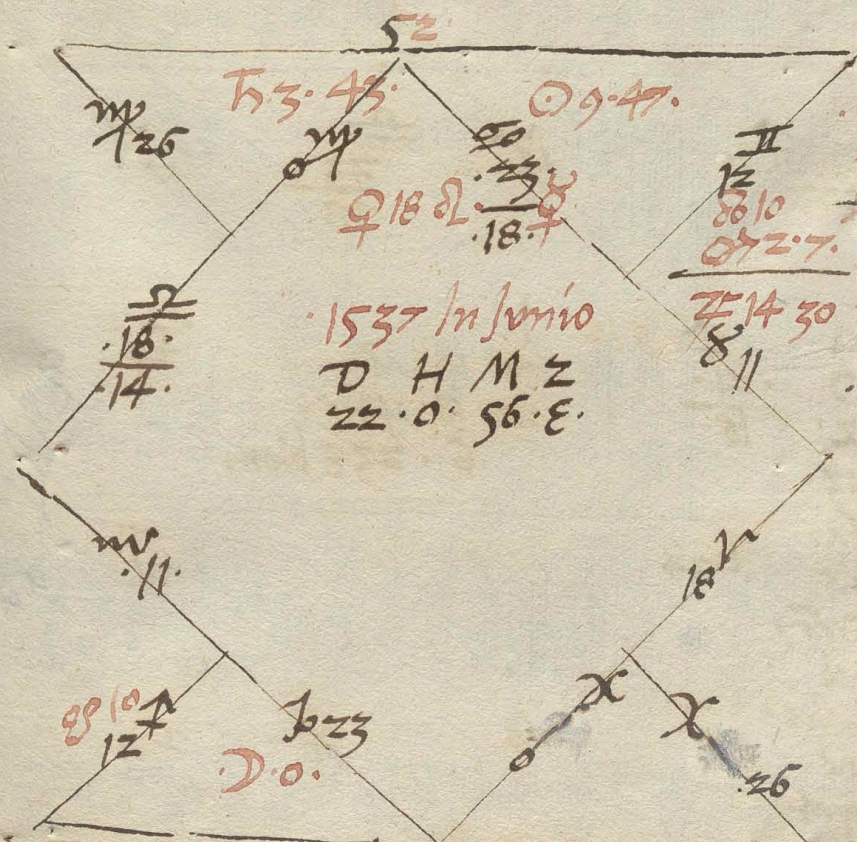 52
♄ 3. 43.
☉ 9. 47.
♍ 26
0 ♍
♋
.23.
.18.
♊
12
♀ 18 ♌. ☿
☊ 10
♂ 2. 7.
♃ 14 30
♉ 11
♎
.18.
.14.
.1537 In Junio
D H M Z
22. 0. 56. E.
♏
.11.
♈
18
☋ 10 ♐
12
♑ 23
.☽. 0.
♓
0
♓
.26